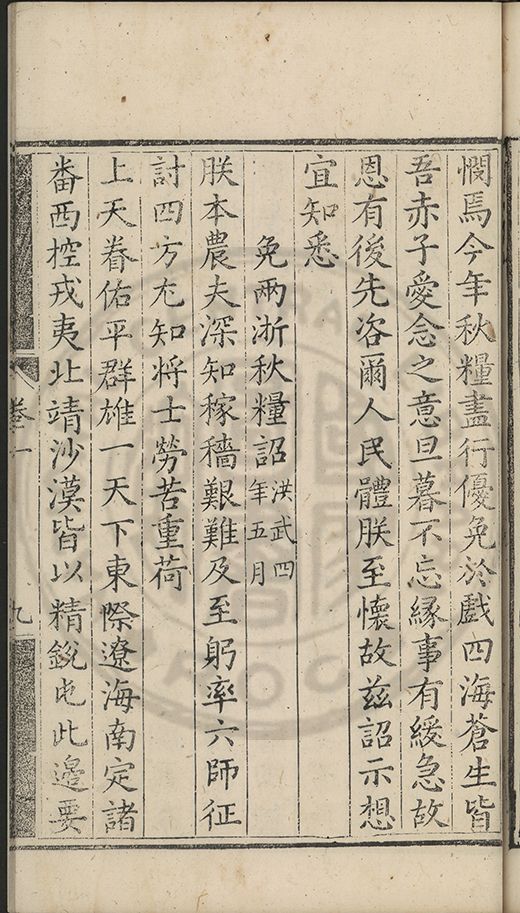 憫焉今年秋糧盡行優免於戲四海蒼生皆
吾赤子愛念之意旦暮不忘緣事有緩急故
恩有後先咨爾人民體朕至懷故兹詔示想
宜知悉
免兩浙秋糧詔洪武四年五月
朕本農夫深知稼穡艱難及至躬率六師征
討四方尤知將士勞苦重荷
上天眷佑平群雄一天下東際遼海南定諸
番西控戎夷北靖沙漠皆以精銳屯此邊要
卷一
九